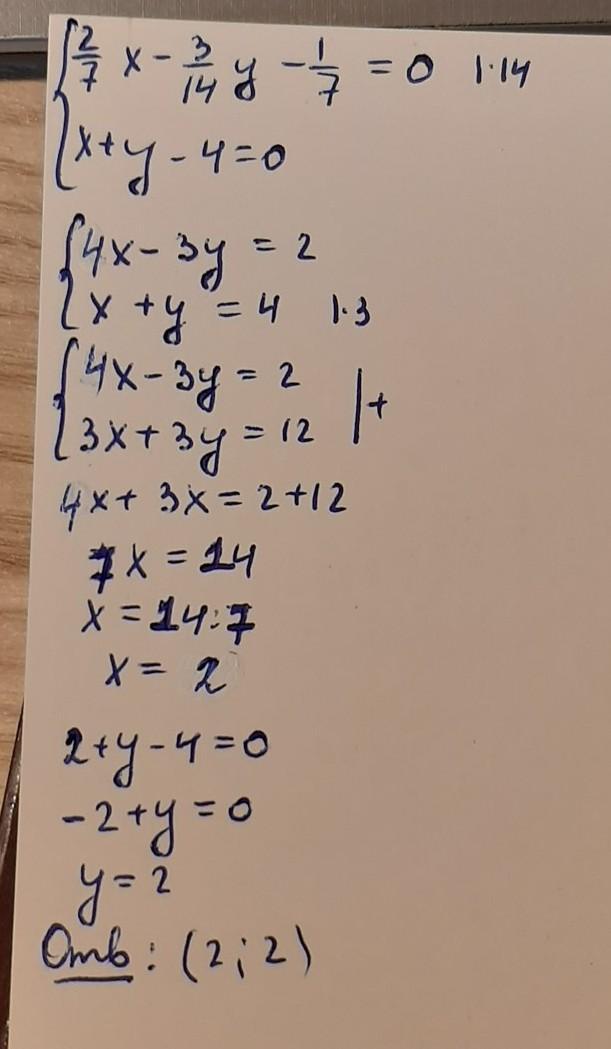 {2/7 x - 3/14 y - 1/7 = 0 |·14
x + y - 4 = 0
{4x - 3y = 2
x + y = 4 |·3
{4x - 3y = 2
3x + 3y = 12 |+
4x + 3x = 2 + 12
7x = 14
x = 14:7
x = 2
2 + y - 4 = 0
-2 + y = 0
y = 2
Отв: (2; 2)